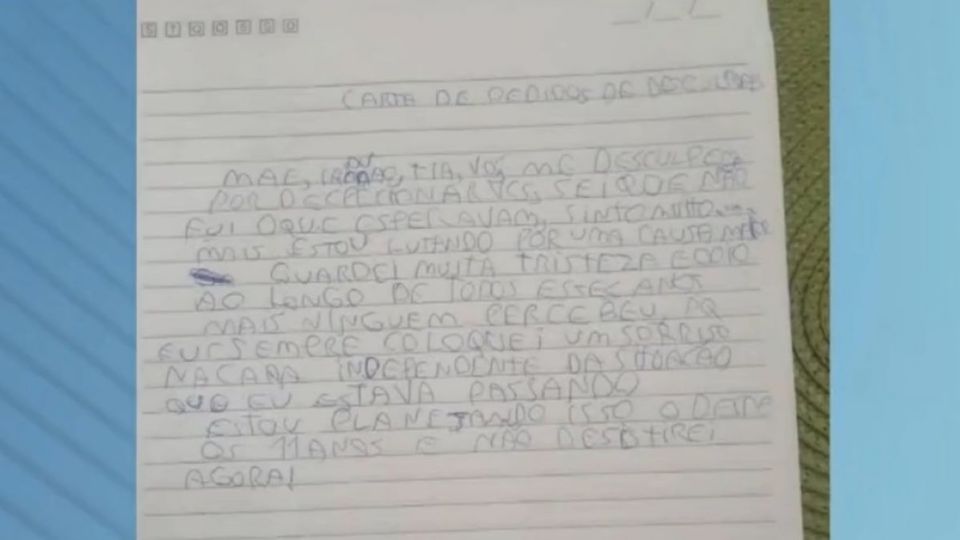 S T Q Q S S D
CARTA DE PEDIDOS DE DESCULPAS
OU
MÃE, IRMÃO, TIA, VÓS, ME DESCULPEM
POR DECEPCIONAR VCS, SEI QUE NÃO
FUI OQUE ESPERAVAM, SINTO MUITO
MAIS ESTOU LUTANDO POR UMA CAUSA
GUARDEI MUITA TRISTEZA E ODIO
AO LONGO DE TODOS ESSEC ANOS
MAIS NINGUEM PERCEBEU, PQ
EU SEMPRE COLOQUEI UM SORRISO
NA CARA INDEPENDENTE DA SITUAÇÃO
QUE EU ESTAVA PASSANDO
ESTOU PLANEJANDO ISSO DESDE
OS 11 ANOS E NÃO DESISTIREI
AGORA!